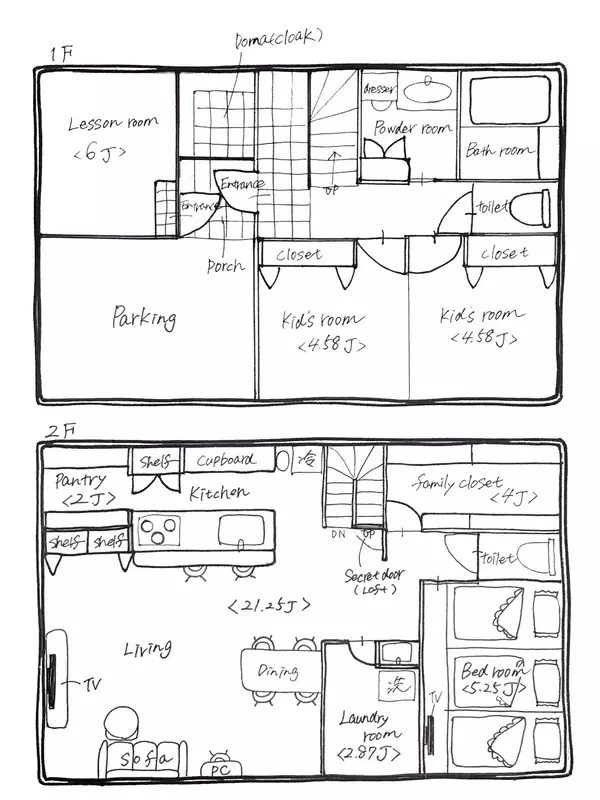 1F
Doma(cloak)
Lesson room
<6J>
dresser
Powder room
Bath room
Entrance
Entrance
UP
toilet
Porch
closet
closet
Parking
Kid's room
<4.58J>
Kid's room
<4.58J>
2F
Pantry
<2J>
shelf
Cupboard
冷
Kitchen
family closet
<4J>
shelf
shelf
DN
UP
Secret door
(Loft)
toilet
<21.25J>
Living
Dining
TV
洗
Bed room
<5.25J>
TV
Laundry
room
<2.87J>
Sofa
PC